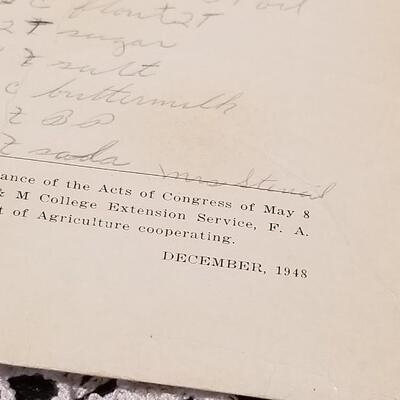 c flour + 2T oil
2 T sugar
t salt
c buttermilk
t BP
t soda Mrs
ance of the Acts of Congress of May 8
& M College Extension Service, F. A.
t of Agriculture cooperating.
DECEMBER, 1948